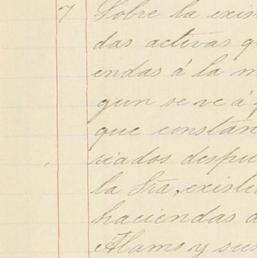 7 Sobre la exis
das activas q
endas á la m
gun se ve á f
que constan
riados despu
la Sra, exist
haciendas d
Alamo y sus